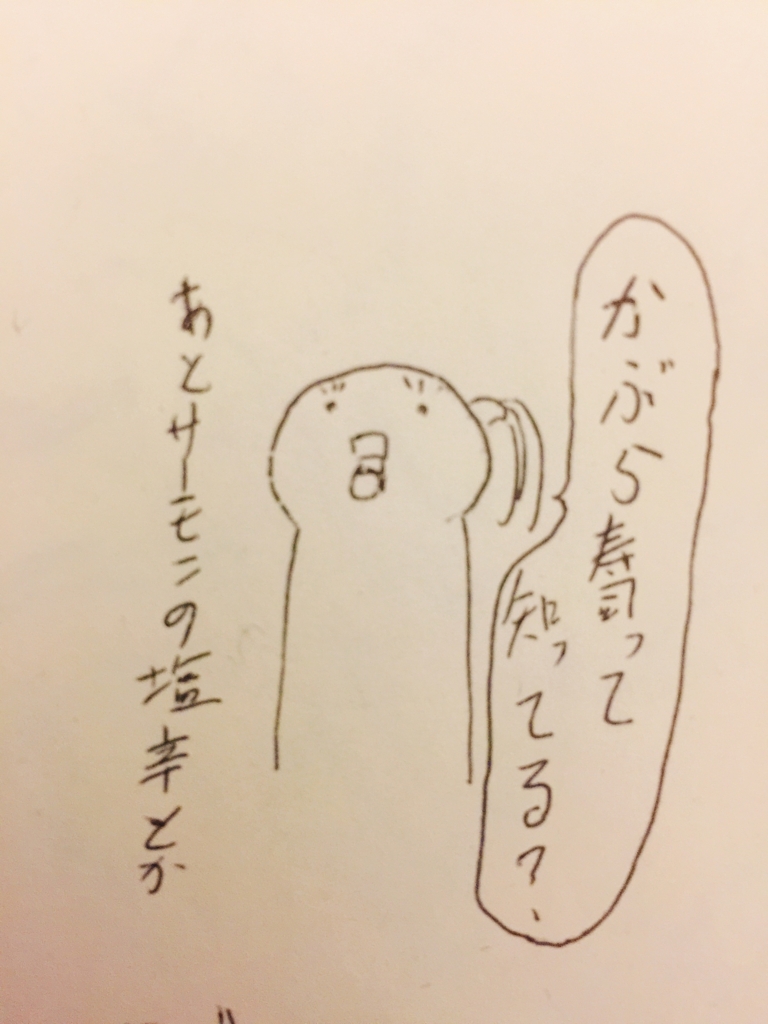 かぶら寿司って
知ってる？
あとサーモンの塩辛とか